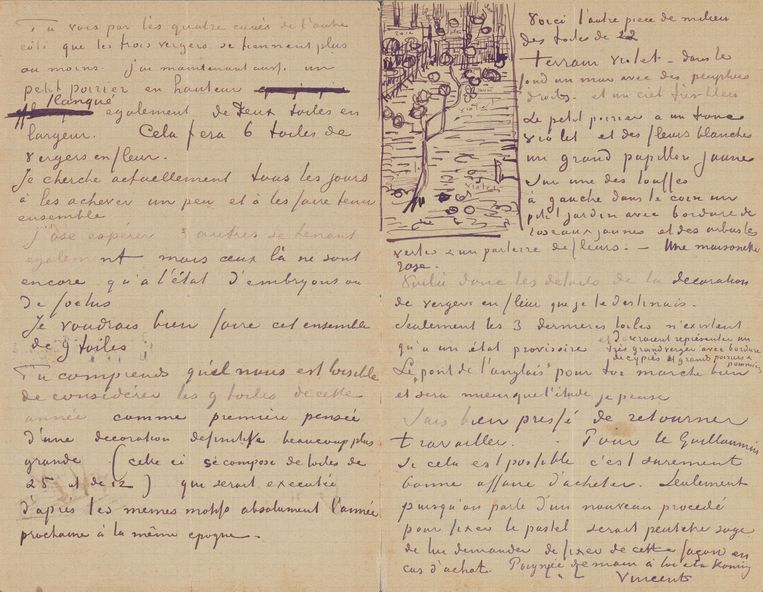 Tu vois par les quatre cuvés de l'autre
côté que les trois vergers se tiennent plus
ou moins. j'ai maintenant aussi un
petit poirier en hauteur
flanqué également de deux toiles en
largeur. Cela fera 6 toiles de
vergers en fleur.
Je cherche actuellement tous les jours
à les achever un peu et à les faire tenir
ensemble
J'ose espérer 3 autres se tenant
également mais ceux là ne sont
encore qu'à l'état d'embryons ou
de foetus
Je voudrais bien faire cet ensemble
de 9 toiles
Tu comprends qu'il nous est loisible
de considérer les 9 toiles de cette
année comme première pensée
d'une decoration definitive beaucoup plus
grande (celle ci se compose de toiles de
25 et de 12) qui serait executée
d'après les memes motifs absolument l'année
prochaine à la même epoque.
rose
violet
Voici l'autre piece de milieu
des toiles de 12
terrain violet – dans le
fond un mur avec des peupliers
droits. et un ciel très bleu
Le petit poirier a un tronc
violet et des fleurs blanches
un grand papillon jaune
sur une des touffes
à gauche dans le coin un
petit jardin avec bordure de
roseaux jaunes et des arbustes
verts & un parterre de fleurs. — Une maisonette
rose.
Voilà donc les details de la decoration
de vergers en fleur que je te destinais.
Seulement les 3 dernieres toiles n'existent
qu'a un état provisoire et devraient representer un
très grand verger avec bordure
de cyprès et grands poiriers &
pommiers
Le pont de l'anglais pour toi marche bien
et sera mieux que l'étude je pense
Suis bien pressé de retourner
travailler. Pour le Guillaumin
si cela est possible c'est surement
bonne affaire d'acheter. Seulement
puisqu'on parle d'un nouveau procedé
pour fixer le pastel serait peutetre sage
de lui demander de fixer de cette façon en
cas d'achat. Poignée de main à toi et à Koning
Vincent